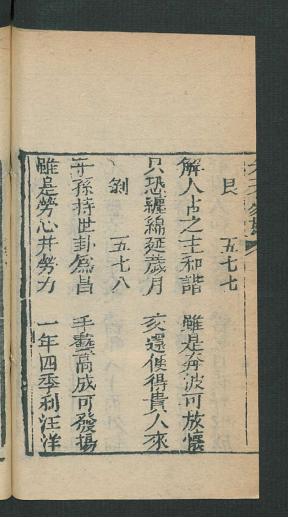 艮　五七七
解人占之主和諧　雖是奔波可放懷
只恐纏綿延歲月　亥還使得貴人來
剝　五七八
子孫持世卦爲昌　手藝高成可發揚
雖是勞心并勞力　一年四季利汪洋